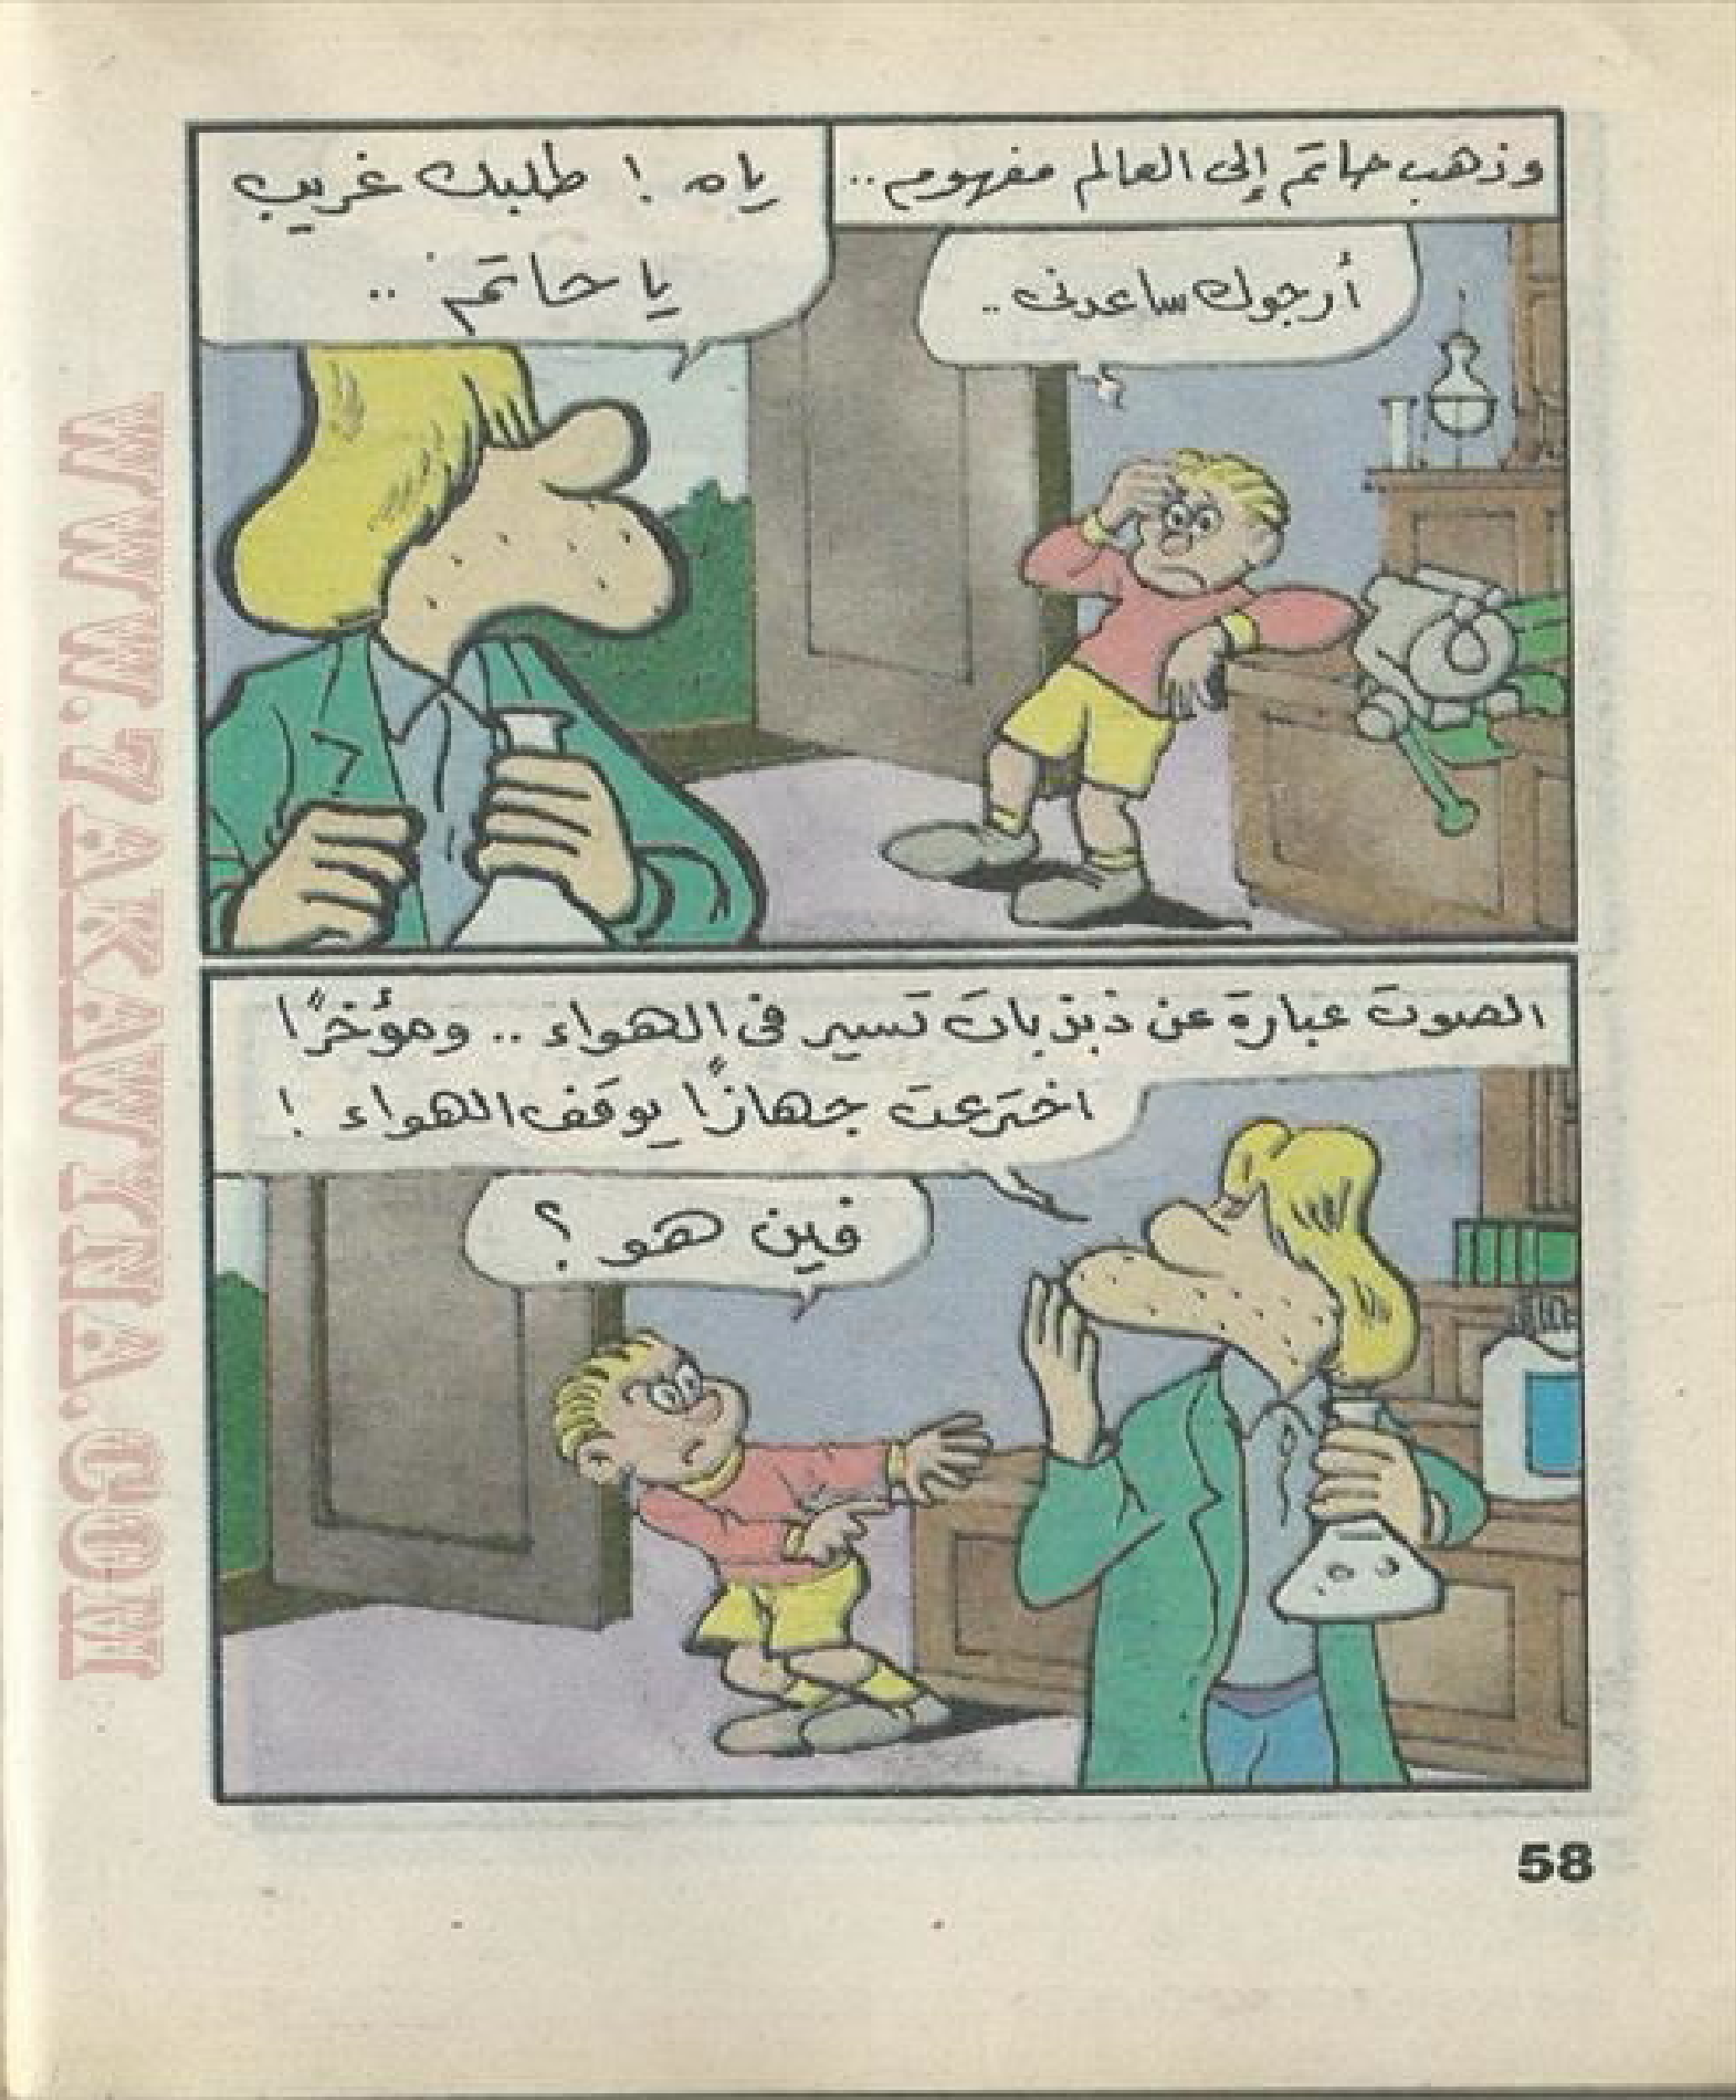 وذهب حاتم إلى العالم مفهوم..
أرجوك ساعدنى..
ياه ! طلبك غريب
يا حاتم ..
الصوت عبارة عن ذبذبات تسير فى الهواء .. ومؤخرًا
اخترعت جهازًا يوقف الهواء !
فين هو ؟
58
WWW.7AKAWYNA.COM